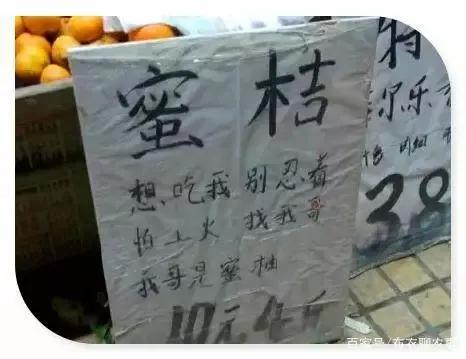 蜜桔
想吃我 别忍着
怕上火 找我哥
我哥是蜜柚
10元4斤
特
尔乐
38
百家号/布衣聊农